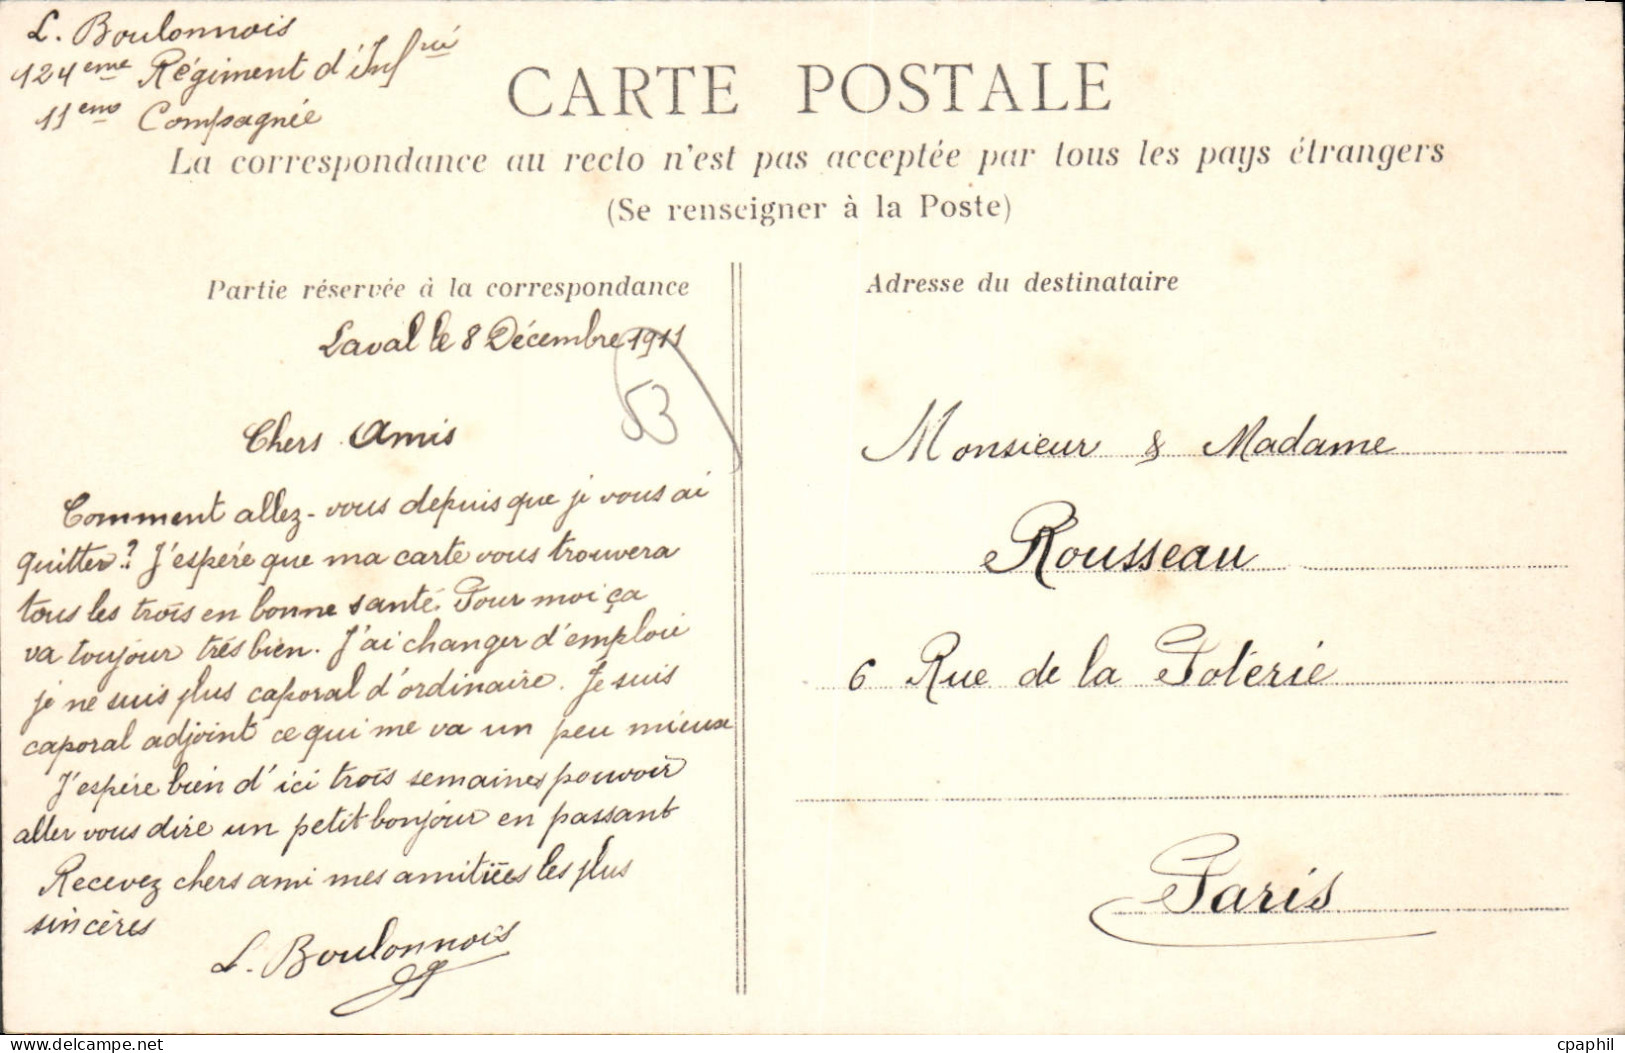 L. Boulonnois
124eme Régiment d'Infrié
11eme Compagnée
CARTE POSTALE
La correspondance au recto n'est pas acceptée par tous les pays étrangers
(Se renseigner à la Poste)
Partie réservée à la correspondance
Laval le 8 Décembre 1911
53
Chers Amis
Comment allez-vous depuis que je vous ai
quitter? J'espére que ma carte vous trouvera
tous les trois en bonne santé. Pour moi ça
va toujour trés bien. J'ai changer d'emploie
je ne suis plus caporal d'ordinaire. Je suis
caporal adjoint ce qui me va un peu mieux
J'espére bien d'ici trois semaines pouvoir
aller vous dire un petit bonjour en passant
Recevez chers ami mes amitiées les plus
sincères
L. Boulonnois
Adresse du destinataire
Monsieur & Madame
Rousseau
6 Rue de la Poterie
Paris
cpaphil